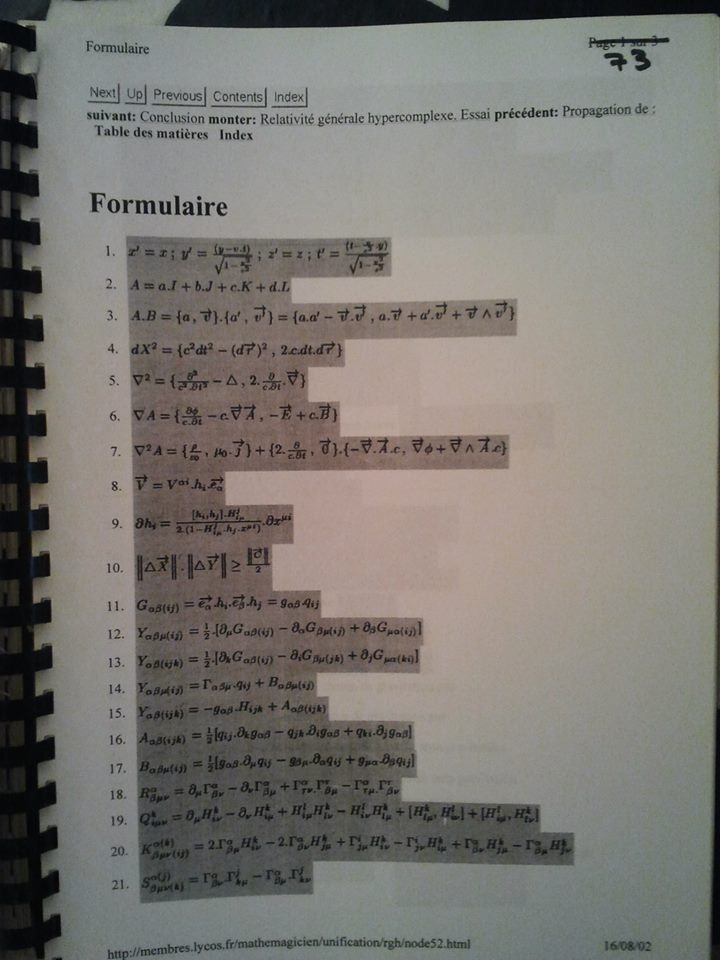 Formulaire
Page 1 sur 3
73
Next Up Previous Contents Index
suivant: Conclusion monter: Relativité générale hypercomplexe. Essai précédent: Propagation de :
Table des matières Index
Formulaire
1. x' = x ; y' = (y−v.t)/√(1−v²/c²) ; z' = z ; t' = (t−v/c².y)/√(1−v²/c²)
2. A = a.I + b.J + c.K + d.L
3. A.B = {a , v⃗}.{a' , v⃗'} = {a.a' − v⃗.v⃗' , a.v⃗' + a'.v⃗ + v⃗ ∧ v⃗'}
4. dX² = {c²dt² − (dr⃗)² , 2.c.dt.dr⃗}
5. ∇² = {∂²/c².∂t² − △ , 2.∂/c.∂t.∇⃗}
6. ∇A = {∂ϕ/c.∂t − c.∇⃗A⃗ , −E⃗ + c.B⃗}
7. ∇²A = {ρ/ε₀ , μ₀.j⃗} + {2.∂/c.∂t , 0⃗}.{−∇⃗.A⃗.c , ∇⃗ϕ + ∇⃗ ∧ A⃗.c}
8. V⃗ = V^αi.h_i.e⃗_α
9. ∂h_i = [h_i,h_j].H^j_iμ / 2.(1−H^j_iμ.h_j.x^μi) .∂x^μi
10. ‖△X⃗‖.‖△Y⃗‖ ≥ ‖C⃗‖/2
11. G_αβ(ij) = e⃗_α.h_i.e⃗_β.h_j = g_αβ.q_ij
12. Y_αβμ(ij) = ½.[∂_μG_αβ(ij) − ∂_αG_βμ(ij) + ∂_βG_μα(ij)]
13. Y_αβ(ijk) = ½.[∂_kG_αβ(ij) − ∂_iG_βμ(jk) + ∂_jG_μα(ki)]
14. Y_αβμ(ij) = Γ_αβμ.q_ij + B_αβμ(ij)
15. Y_αβ(ijk) = −g_αβ.H_ijk + A_αβ(ijk)
16. A_αβ(ijk) = ½[q_ij.∂_kg_αβ − q_jk.∂_ig_αβ + q_ki.∂_jg_αβ]
17. B_αβμ(ij) = ½[g_αβ.∂_μq_ij − g_βμ.∂_αq_ij + g_μα.∂_βq_ij]
18. R^α_βμν = ∂_μΓ^α_βν − ∂_νΓ^α_βμ + Γ^α_τν.Γ^τ_βμ − Γ^α_τμ.Γ^τ_βν
19. Q^k_iμν = ∂_μH^k_iν − ∂_νH^k_iμ + H^l_iμH^k_lν − H^l_iνH^k_lμ + [H^k_iμ, H^l_iν] + [H^l_iμ, H^k_iν]
20. K^α(k)_βμν(ij) = 2.Γ^α_βμH^k_iν − 2.Γ^α_βνH^k_jμ + Γ^i_jμH^k_iν − Γ^i_jνH^k_iμ + Γ^α_βνH^k_jμ − Γ^α_βμH^k_jν
21. S^α(j)_βμν(k) = Γ^α_βν.Γ^j_kμ − Γ^α_βμ.Γ^j_kν
http://membres.lycos.fr/mathemagicien/unification/rgh/node52.html
16/08/02